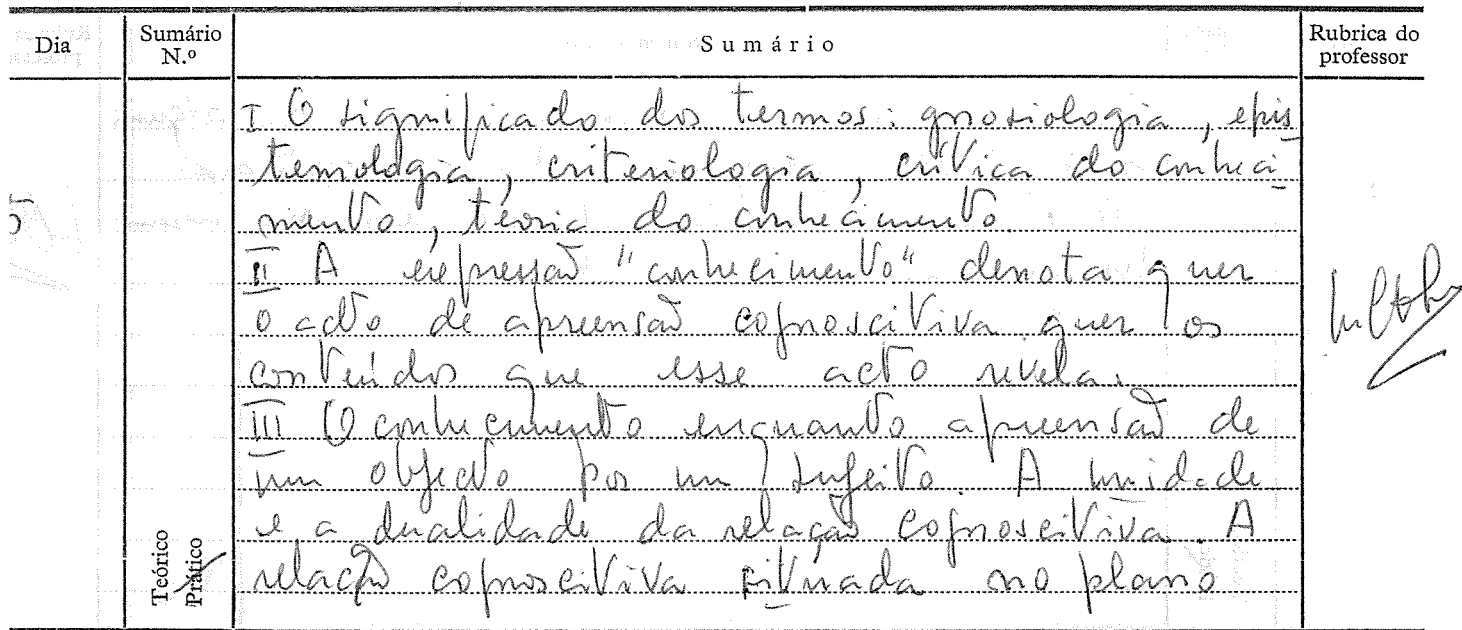 Dia
Sumário N.º
Sumário
Rubrica do professor
I O significado dos termos: gnosiologia, epis
temologia, criteriologia, crítica do conheci-
mento, teoria do conhecimento.
II A expressão "conhecimento" denota quer
o acto de apreensão cognoscitiva quer os
conteúdos que esse acto revela.
III O conhecimento enquanto apreensão de
um objecto por um sujeito. A unidade
e a dualidade da relação cognoscitiva. A
relação cognoscitiva situada no plano
Teórico
Prático